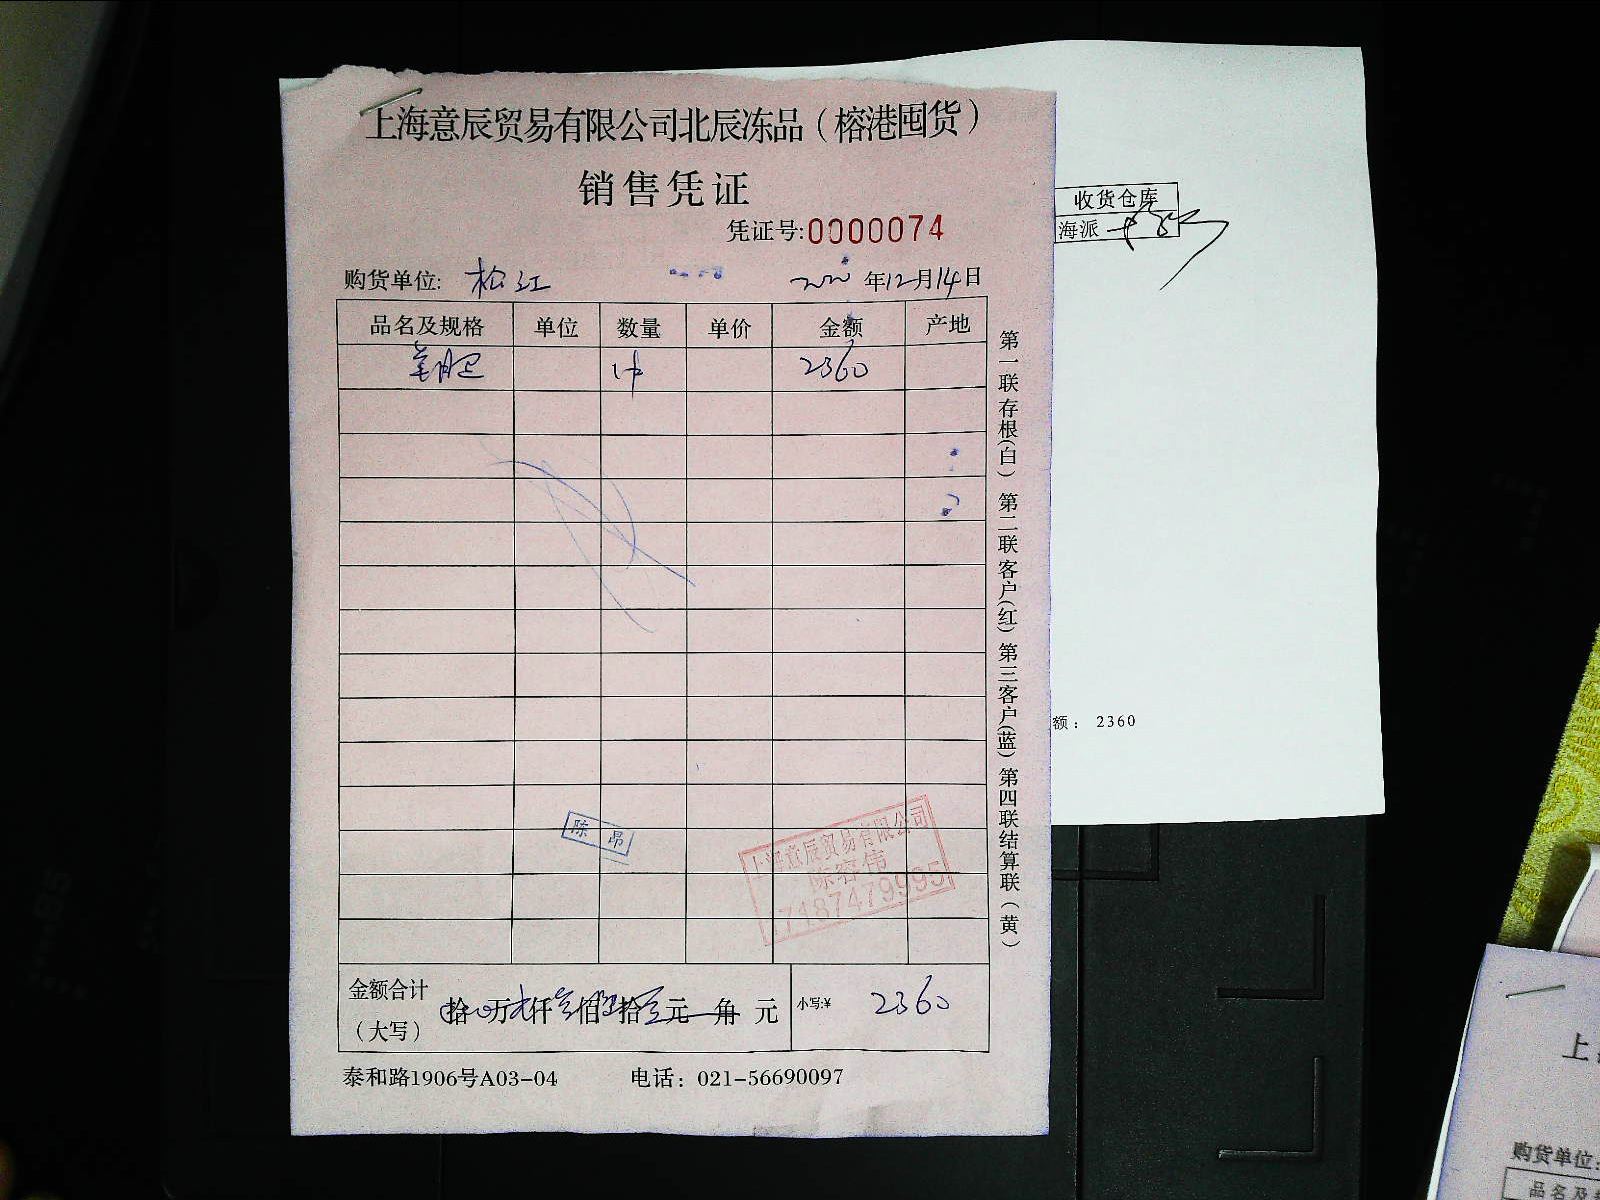 上海意辰贸易有限公司北辰冻品（榕港囤货）
销售凭证
凭证号:0000074
购货单位: 松江 年12月14日
品名及规格 单位 数量 单价 金额 产地
2360
第一联存根(白) 第二联客户(红) 第三客户(蓝) 第四联结算联(黄)
陈昂
上海意辰贸易有限公司
陈容伟
17187479995
金额合计
（大写）
拾 万 仟 佰 拾 元 角 元
小写:¥ 2360
泰和路1906号A03-04 电话：021-56690097
收货仓库
海派
额： 2360
上
购货单位:
品名及